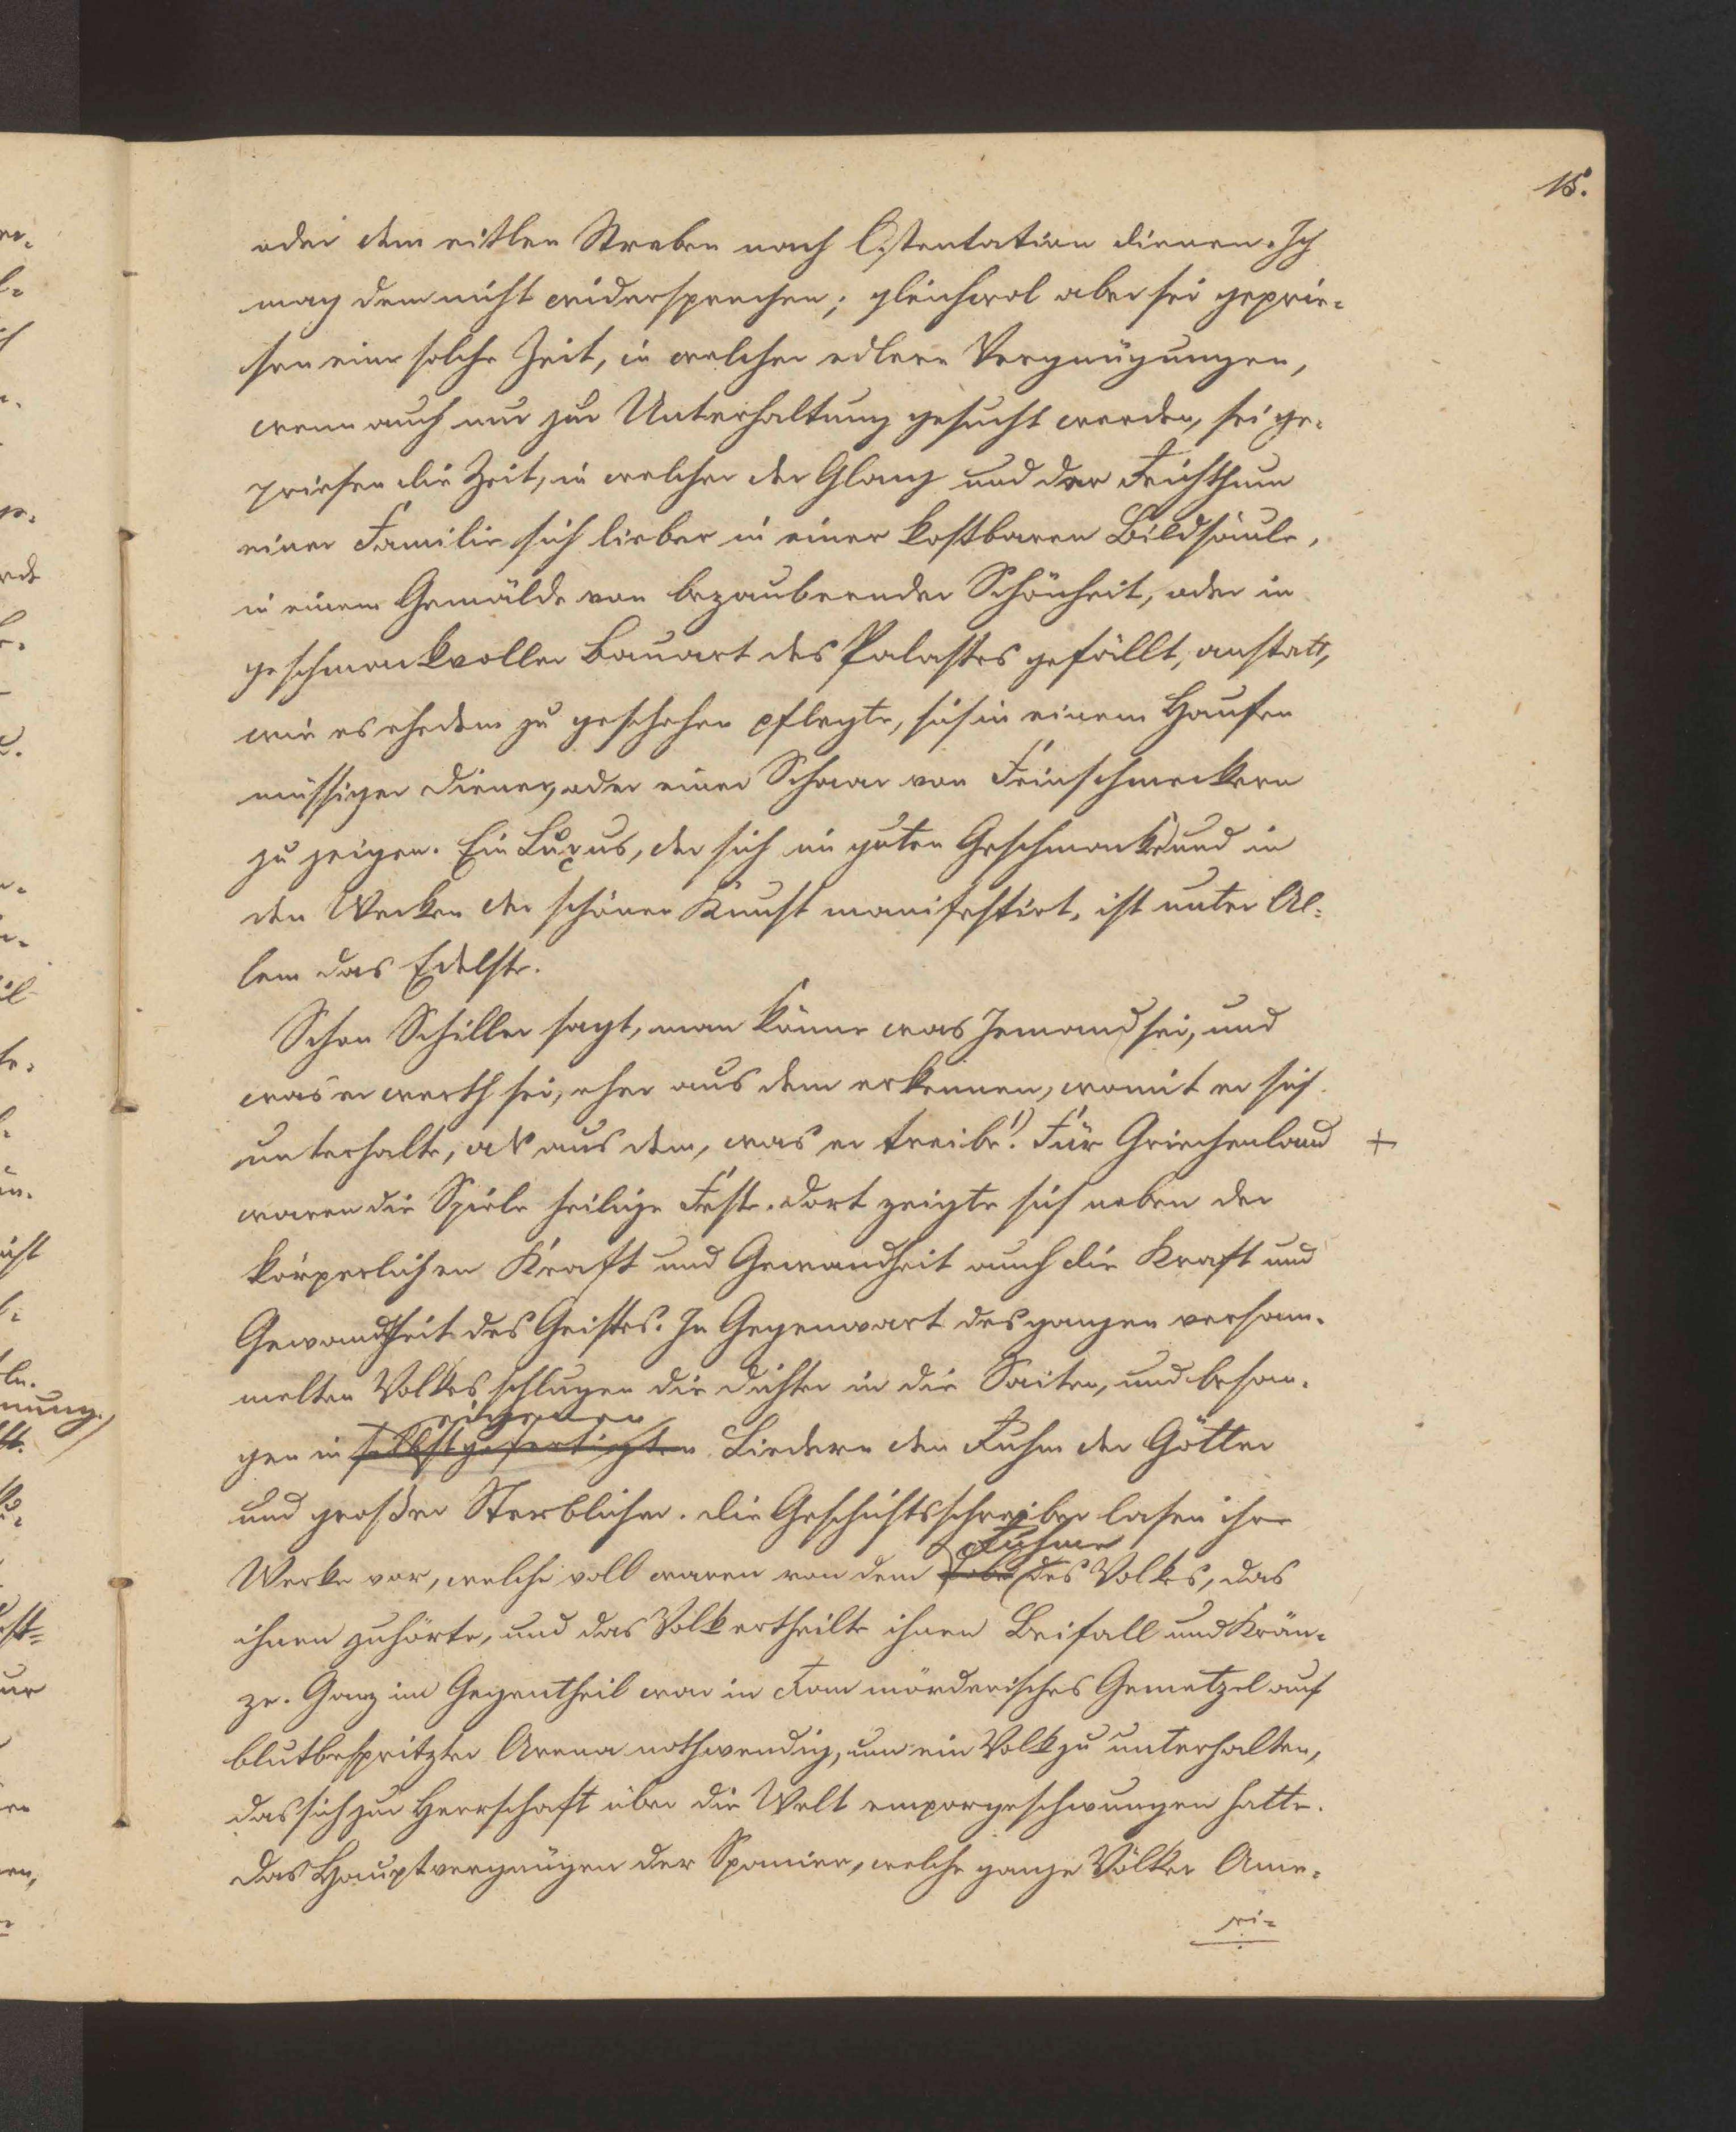 15.
oder dem eitlen Streben nach Ostentation dienen. Ich
mag dem nicht widersprechen; gleichwol aber sei geprie-
sen eine solche Zeit, in welcher edlere Vergnügungen,
wenn auch nur zur Unterhaltung gesucht werden, sei ge-
priesen die Zeit, in welcher der Glanz und der Reichthum
einer Familie sich lieber in einer kostbaren Bildsäule,
in einem Gemälde von bezaubernder Schönheit, oder in
geschmackvoller Bauart des Palastes gefällt, anstatt,
wie es ehedem zu geschehen pflegte, sich in einem Haufen
müssiger Diener, oder einer Schaar von Feinschmeckern
zu zeigen. Ein Luxus, der sich im guten Geschmack und in
den Werken der schönen Kunst manifestirt, ist unter Al-
lem das Edelste.
Schon Schiller sagt, man könne was Jemand sei, und
was er werth sei, eher aus dem erkennen, womit er sich
unterhalte, als aus dem, was er treibe.1) Für Griechenland +
waren die Spiele heilige Feste. Dort zeigte sich neben der
körperlichen Kraft und Gewandheit auch die Kraft und
Gewandtheit des Geistes. In Gegenwart des ganzen versam-
melten Volkes schlugen die Dichter in die Saiten, und besan-
eigenen
gen in selbstgefertigten Liedern den Ruhm der Götter
und großer Sterblicher. Die Geschichtsschreiber lasen ihre
Ruhme
Werke vor, welche voll waren von dem Lobe des Volkes, das
ihnen zuhörte, und das Volk ertheilte ihnen Beifall und Krän-
ze. Ganz im Gegentheil war in Rom mörderisches Gemetzel auf
blutbespritzter Arena nothwendig, um ein Volk zu unterhalten,
das sich zur Herrschaft über die Welt emporgeschwungen hatte.
Das Hauptvergnügen der Spanier, welche ganze Völker Ame-
ri-